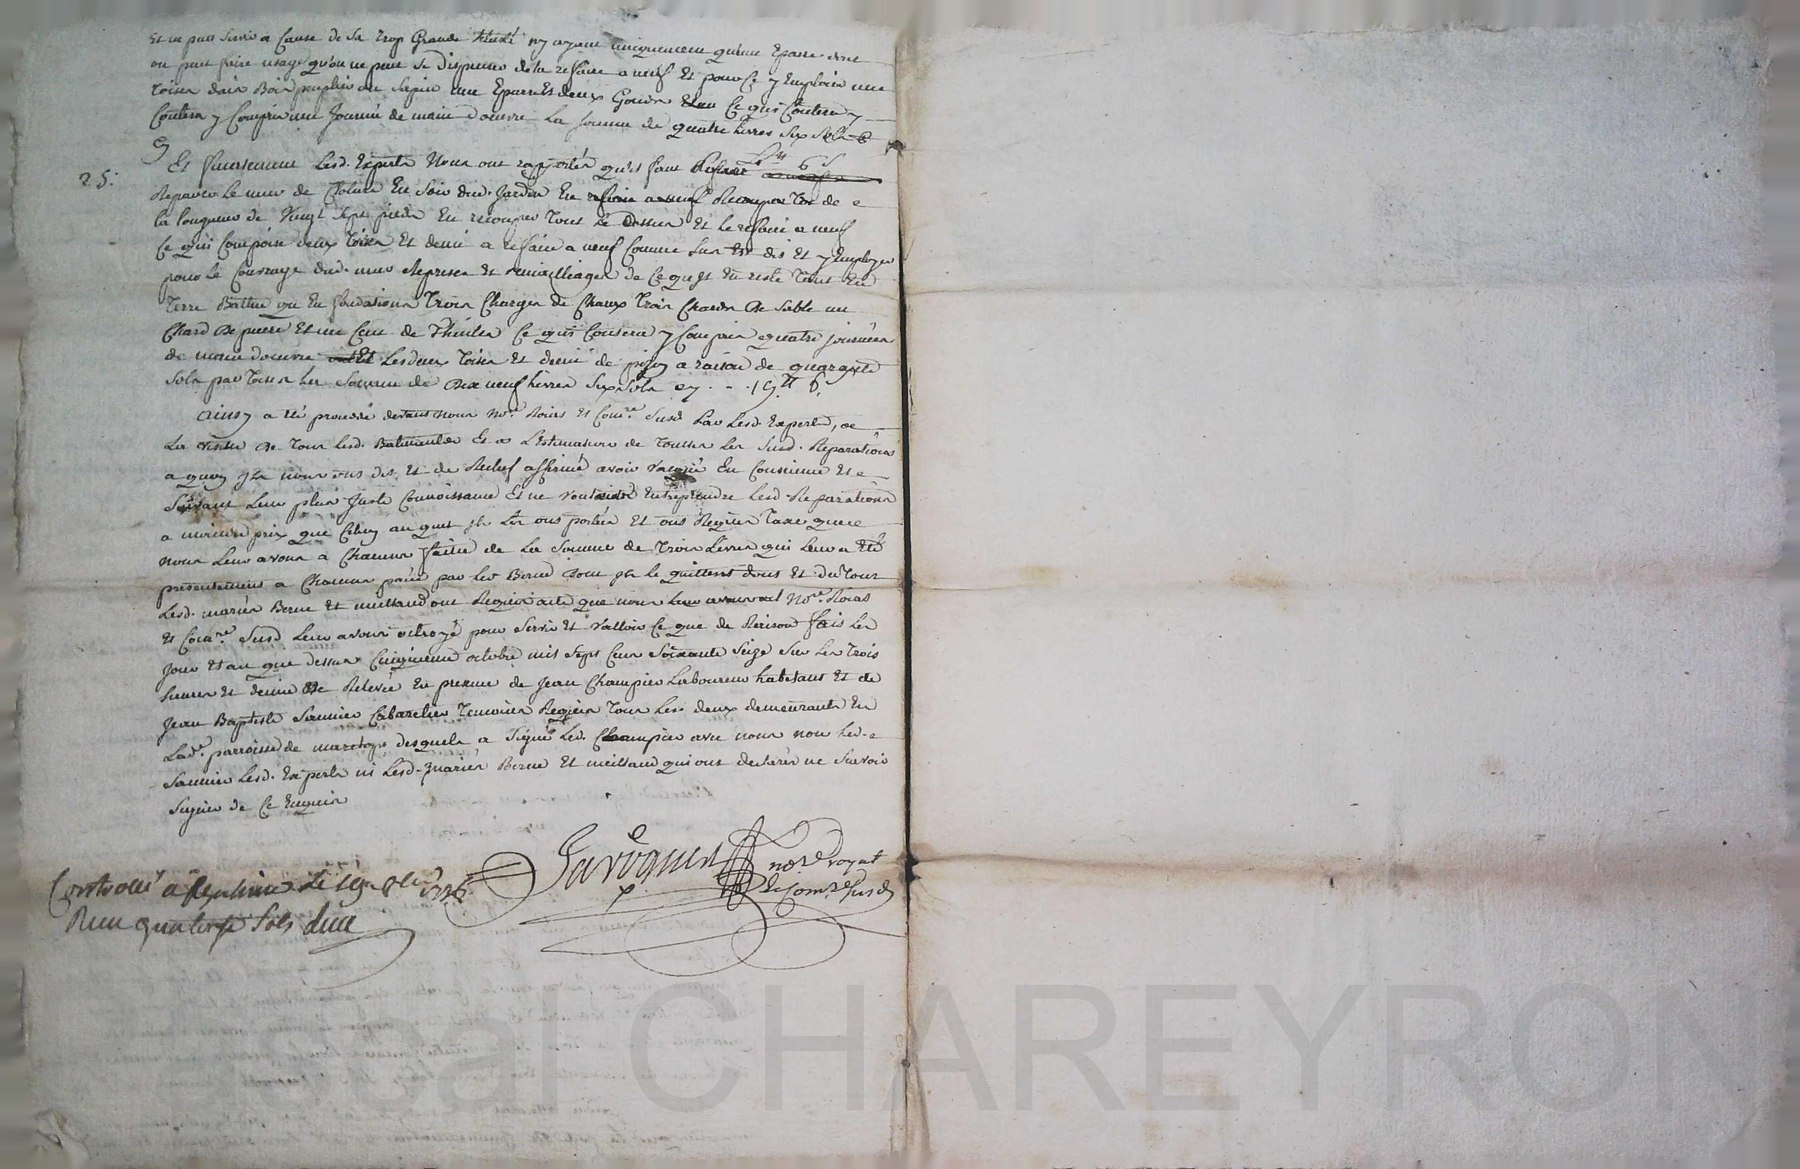 et ne peut servir a Cause de sa trop Grande n'y ayant uniquement qu'une Eparre dont
on peut faire usage qu'on ne peut se dispenser de la refaire a neuf Et pour Ce y Employer une
Toise d'aix Bois peuplier ou Sapin une Eparre Et deux Gonds Ce qui Coutera y
Coutera y Compris une Journée de main d'oeuvre La Somme de quatre Livres Six Sols
25: Et finalement Lesd. Experts Nous ont rapportés qu'il faut
Reparer Le mur de Cloture En Soir dud. Jardin En de
la longueur de Vingt Sept pieds En recouper Tout Le Dessus Et Le refaire a neuf
Ce qui Compose deux Toises Et demi a refaire a neuf Comme Sus Est dit Et y Employer
pour Le Couvrage dud. mur Reprises Et de Ce qu'il En reste Tant En
Terre Battue qu'En fondations Trois Charges de Chaux Trois Chards de Sable un
Chard de pierre Et un Cent de Thuiles Ce qui Coutera y Compris quatre journées
de main d'oeuvre Lesdeux Toises Et demi de pizey a raison de quarante
Sols par Toises La Somme de dix neuf Livres Six Sols cy - - . 19tt 6.
Ainsy a été procedé devant Nous No.re Roial Et Com.re Susd. Par Lesd. Experts, a
La visite de Tous Lesd. Batiments Et a L'Estimation de Toutes Les Susd. Reparations
a quoy ils nous ont dit Et de Rechef affirmé avoir vacqué En Conscience Et
Suivant Leur plus Juste Connoissance Et ne voudroient Entreprendre Lesd. Reparations
a moindre prix que Celuy au quel ils Les ont portés Et ont Requis Taxe que
nous Leur avons a Chacun faitte de La Somme de Trois Livres qui Leur a été
presentement a Chacun païée par Led. Berne dont ils le quittent dont Et du Tout
Lesd. mariés Berne Et meilland ont Requis acte que nous No.re Roial
Et Com.re Susd. Leur avons octroyé pour Servir Et valloir Ce que de Raison fait Les
Jour Et an que dessus Cinquieme octobre mil Sept Cent Soixante Seize Sur Les Trois
heures Et demie de Relevée En presence de Jean Champier Laboureur habitant Et de
Jean Baptiste Saunier Cabaretier Temoins Requis Tous Les deux demeurants En
Lad.e parroisse de desquels a Signé Led. Champier avec nous non Led.
Saunier Lesd. Experts ni Lesd. mariés Berne Et meilland qui ont declarés ne Scavoir
Signer de Ce Enquis
no.re royal
& Com.re Susd
Controllé a Le 19 8bre 1776
Reçu quatorze Sols
Pascal CHAREYRON